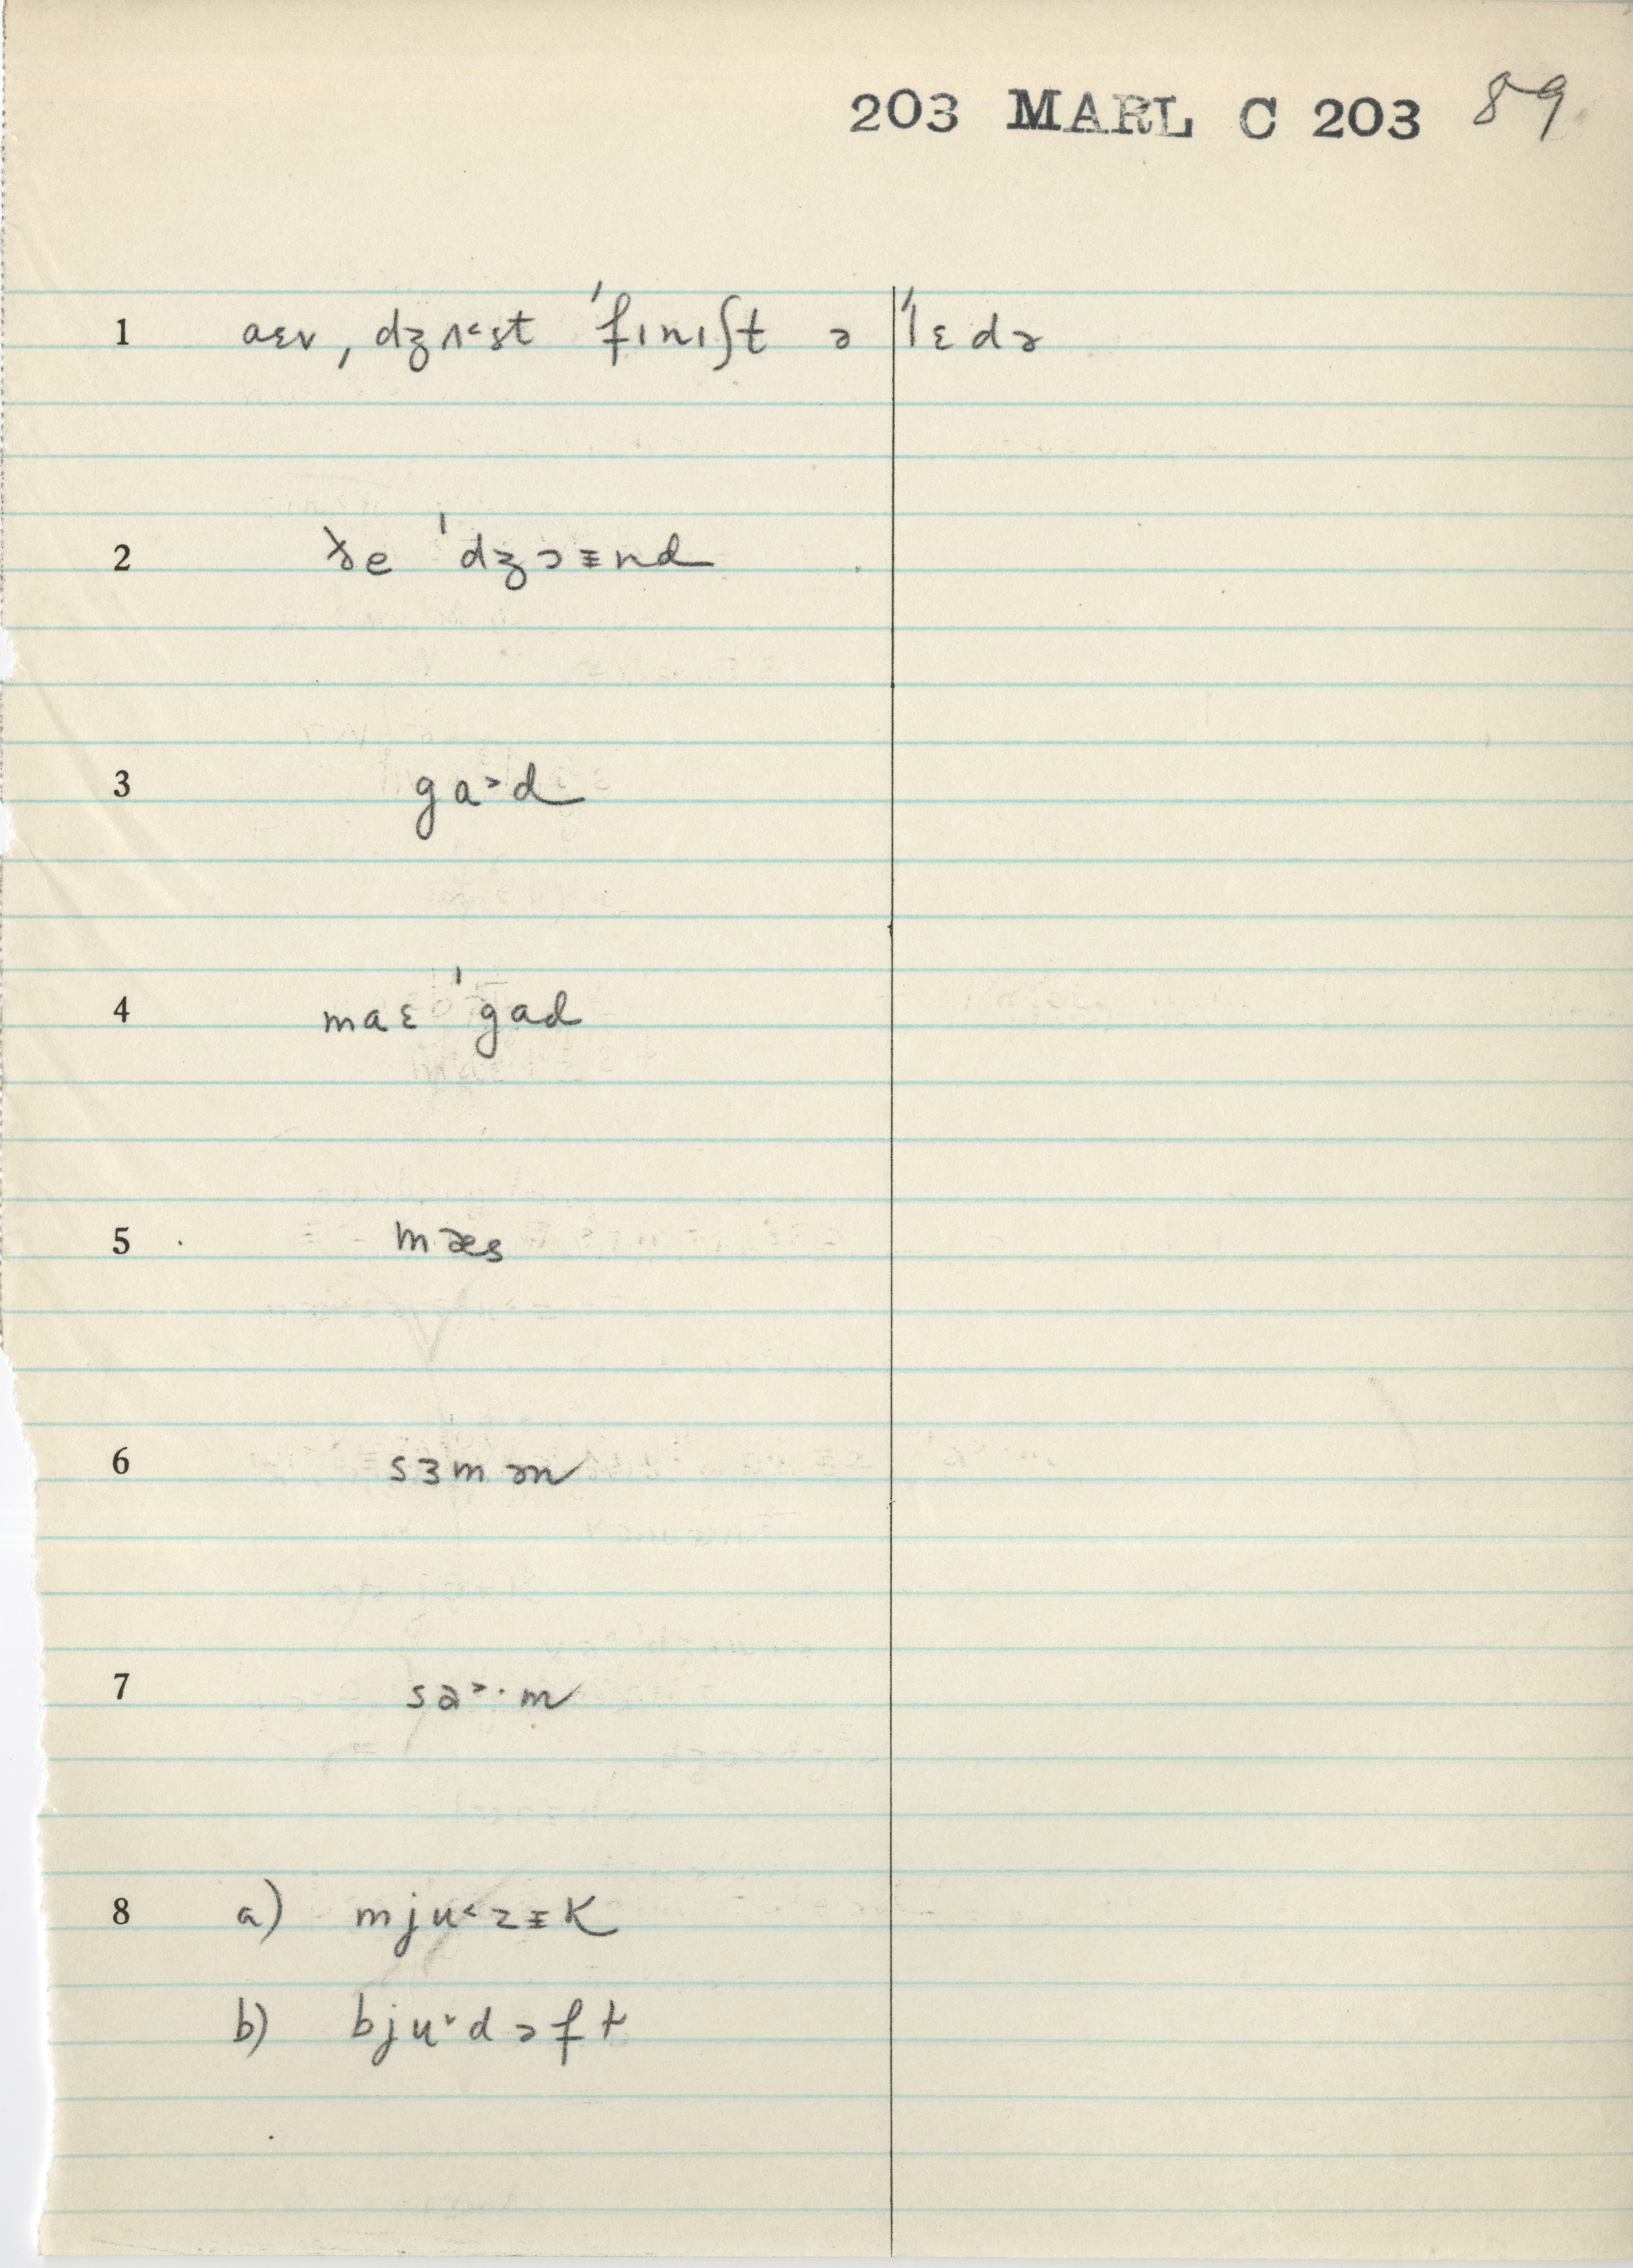 203 MARL C 203 89
1 aɛv ˌdʒʌ˂st ˈfɪnɪʃt ə ˈlɛdə
2 ðe ˈdʒɔɪnd
3 ga˃d
4 maɛ ˈgad
5 mæs
6 sɜmən
7 sa˃·m
8 a) mju˂zɪk
b) bju˅dəft